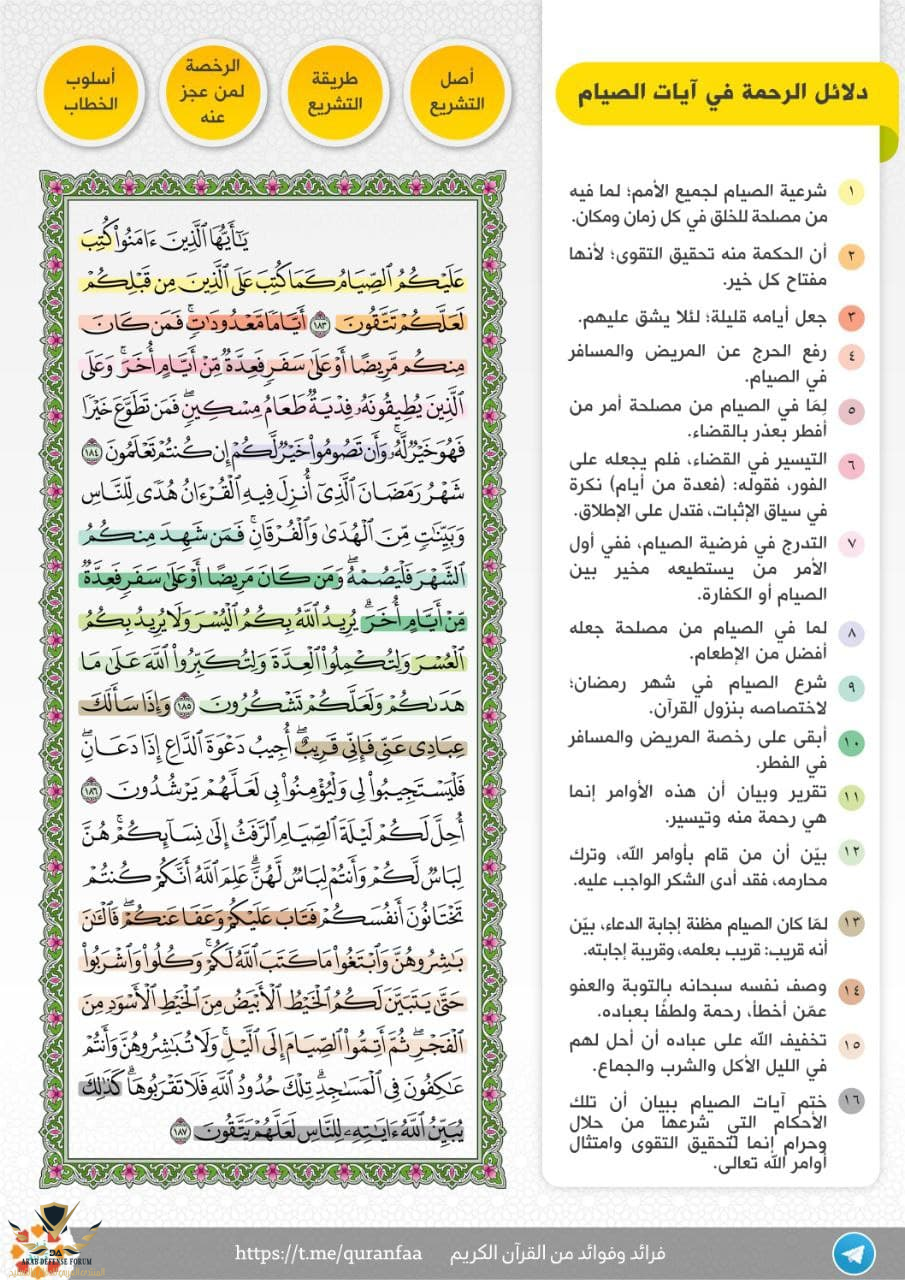 دلائل الرحمة في آيات الصيام
أصل
التشريع
طريقة
التشريع
الرخصة
لمن عجز
عنه
أسلوب
الخطاب
١ شرعية الصيام لجميع الأمم؛ لما فيه
من مصلحة للخلق في كل زمان ومكان.
٢ أن الحكمة منه تحقيق التقوى؛ لأنها
مفتاح كل خير.
٣ جعل أيامه قليلة؛ لئلا يشق عليهم.
٤ رفع الحرج عن المريض والمسافر
في الصيام.
٥ لِمَا في الصيام من مصلحة أمر من
أفطر بعذر بالقضاء.
٦ التيسير في القضاء، فلم يجعله على
الفور، فقوله: (فعدة من أيام) نكرة
في سياق الإثبات، فتدل على الإطلاق.
٧ التدرج في فرضية الصيام، ففي أول
الأمر من يستطيعه مخير بين
الصيام أو الكفارة.
٨ لما في الصيام من مصلحة جعله
أفضل من الإطعام.
٩ شرع الصيام في شهر رمضان؛
لاختصاصه بنزول القرآن.
١٠ أبقى على رخصة المريض والمسافر
في الفطر.
١١ تقرير وبيان أن هذه الأوامر إنما
هي رحمة منه وتيسير.
١٢ بيّن أن من قام بأوامر الله، وترك
محارمه، فقد أدى الشكر الواجب عليه.
١٣ لمَا كان الصيام مظنة إجابة الدعاء، بيّن
أنه قريب: قريب بعلمه، وقريبة إجابته.
١٤ وصف نفسه سبحانه بالتوبة والعفو
عمّن أخطأ، رحمة ولطفًا بعباده.
١٥ تخفيف الله على عباده أن أحل لهم
في الليل الأكل والشرب والجماع.
١٦ ختم آيات الصيام ببيان أن تلك
الأحكام التي شرعها من حلال
وحرام إنما لتحقيق التقوى وامتثال
أوامر الله تعالى.
يَٰٓأَيُّهَا ٱلَّذِينَ ءَامَنُوا۟ كُتِبَ
عَلَيْكُمُ ٱلصِّيَامُ كَمَا كُتِبَ عَلَى ٱلَّذِينَ مِن قَبْلِكُمْ
لَعَلَّكُمْ تَتَّقُونَ ١٨٣ أَيَّامًا مَّعْدُودَٰتٍ ۚ فَمَن كَانَ
مِنكُم مَّرِيضًا أَوْ عَلَىٰ سَفَرٍ فَعِدَّةٌ مِّنْ أَيَّامٍ أُخَرَ ۚ وَعَلَى
ٱلَّذِينَ يُطِيقُونَهُۥ فِدْيَةٌ طَعَامُ مِسْكِينٍ ۖ فَمَن تَطَوَّعَ خَيْرًا
فَهُوَ خَيْرٌ لَّهُۥ ۚ وَأَن تَصُومُوا۟ خَيْرٌ لَّكُمْ ۖ إِن كُنتُمْ تَعْلَمُونَ ١٨٤
شَهْرُ رَمَضَانَ ٱلَّذِىٓ أُنزِلَ فِيهِ ٱلْقُرْءَانُ هُدًى لِّلنَّاسِ
وَبَيِّنَٰتٍ مِّنَ ٱلْهُدَىٰ وَٱلْفُرْقَانِ ۚ فَمَن شَهِدَ مِنكُمُ
ٱلشَّهْرَ فَلْيَصُمْهُ ۖ وَمَن كَانَ مَرِيضًا أَوْ عَلَىٰ سَفَرٍ فَعِدَّةٌ
مِّنْ أَيَّامٍ أُخَرَ ۗ يُرِيدُ ٱللَّهُ بِكُمُ ٱلْيُسْرَ وَلَا يُرِيدُ بِكُمُ
ٱلْعُسْرَ وَلِتُكْمِلُوا۟ ٱلْعِدَّةَ وَلِتُكَبِّرُوا۟ ٱللَّهَ عَلَىٰ مَا
هَدَىٰكُمْ وَلَعَلَّكُمْ تَشْكُرُونَ ١٨٥ وَإِذَا سَأَلَكَ
عِبَادِى عَنِّى فَإِنِّى قَرِيبٌ ۖ أُجِيبُ دَعْوَةَ ٱلدَّاعِ إِذَا دَعَانِ ۖ
فَلْيَسْتَجِيبُوا۟ لِى وَلْيُؤْمِنُوا۟ بِى لَعَلَّهُمْ يَرْشُدُونَ ١٨٦
أُحِلَّ لَكُمْ لَيْلَةَ ٱلصِّيَامِ ٱلرَّفَثُ إِلَىٰ نِسَآئِكُمْ ۚ هُنَّ
لِبَاسٌ لَّكُمْ وَأَنتُمْ لِبَاسٌ لَّهُنَّ ۗ عَلِمَ ٱللَّهُ أَنَّكُمْ كُنتُمْ
تَخْتَانُونَ أَنفُسَكُمْ فَتَابَ عَلَيْكُمْ وَعَفَا عَنكُمْ ۖ فَٱلْـَٰٔنَ
بَٰشِرُوهُنَّ وَٱبْتَغُوا۟ مَا كَتَبَ ٱللَّهُ لَكُمْ ۚ وَكُلُوا۟ وَٱشْرَبُوا۟
حَتَّىٰ يَتَبَيَّنَ لَكُمُ ٱلْخَيْطُ ٱلْأَبْيَضُ مِنَ ٱلْخَيْطِ ٱلْأَسْوَدِ مِنَ
ٱلْفَجْرِ ۖ ثُمَّ أَتِمُّوا۟ ٱلصِّيَامَ إِلَى ٱلَّيْلِ ۚ وَلَا تُبَٰشِرُوهُنَّ وَأَنتُمْ
عَٰكِفُونَ فِى ٱلْمَسَٰجِدِ ۗ تِلْكَ حُدُودُ ٱللَّهِ فَلَا تَقْرَبُوهَا ۗ كَذَٰلِكَ
يُبَيِّنُ ٱللَّهُ ءَايَٰتِهِۦ لِلنَّاسِ لَعَلَّهُمْ يَتَّقُونَ ١٨٧
فرائد وفوائد من القرآن الكريم https://t.me/quranfaa
DA
ARAB DEFENSE FORUM